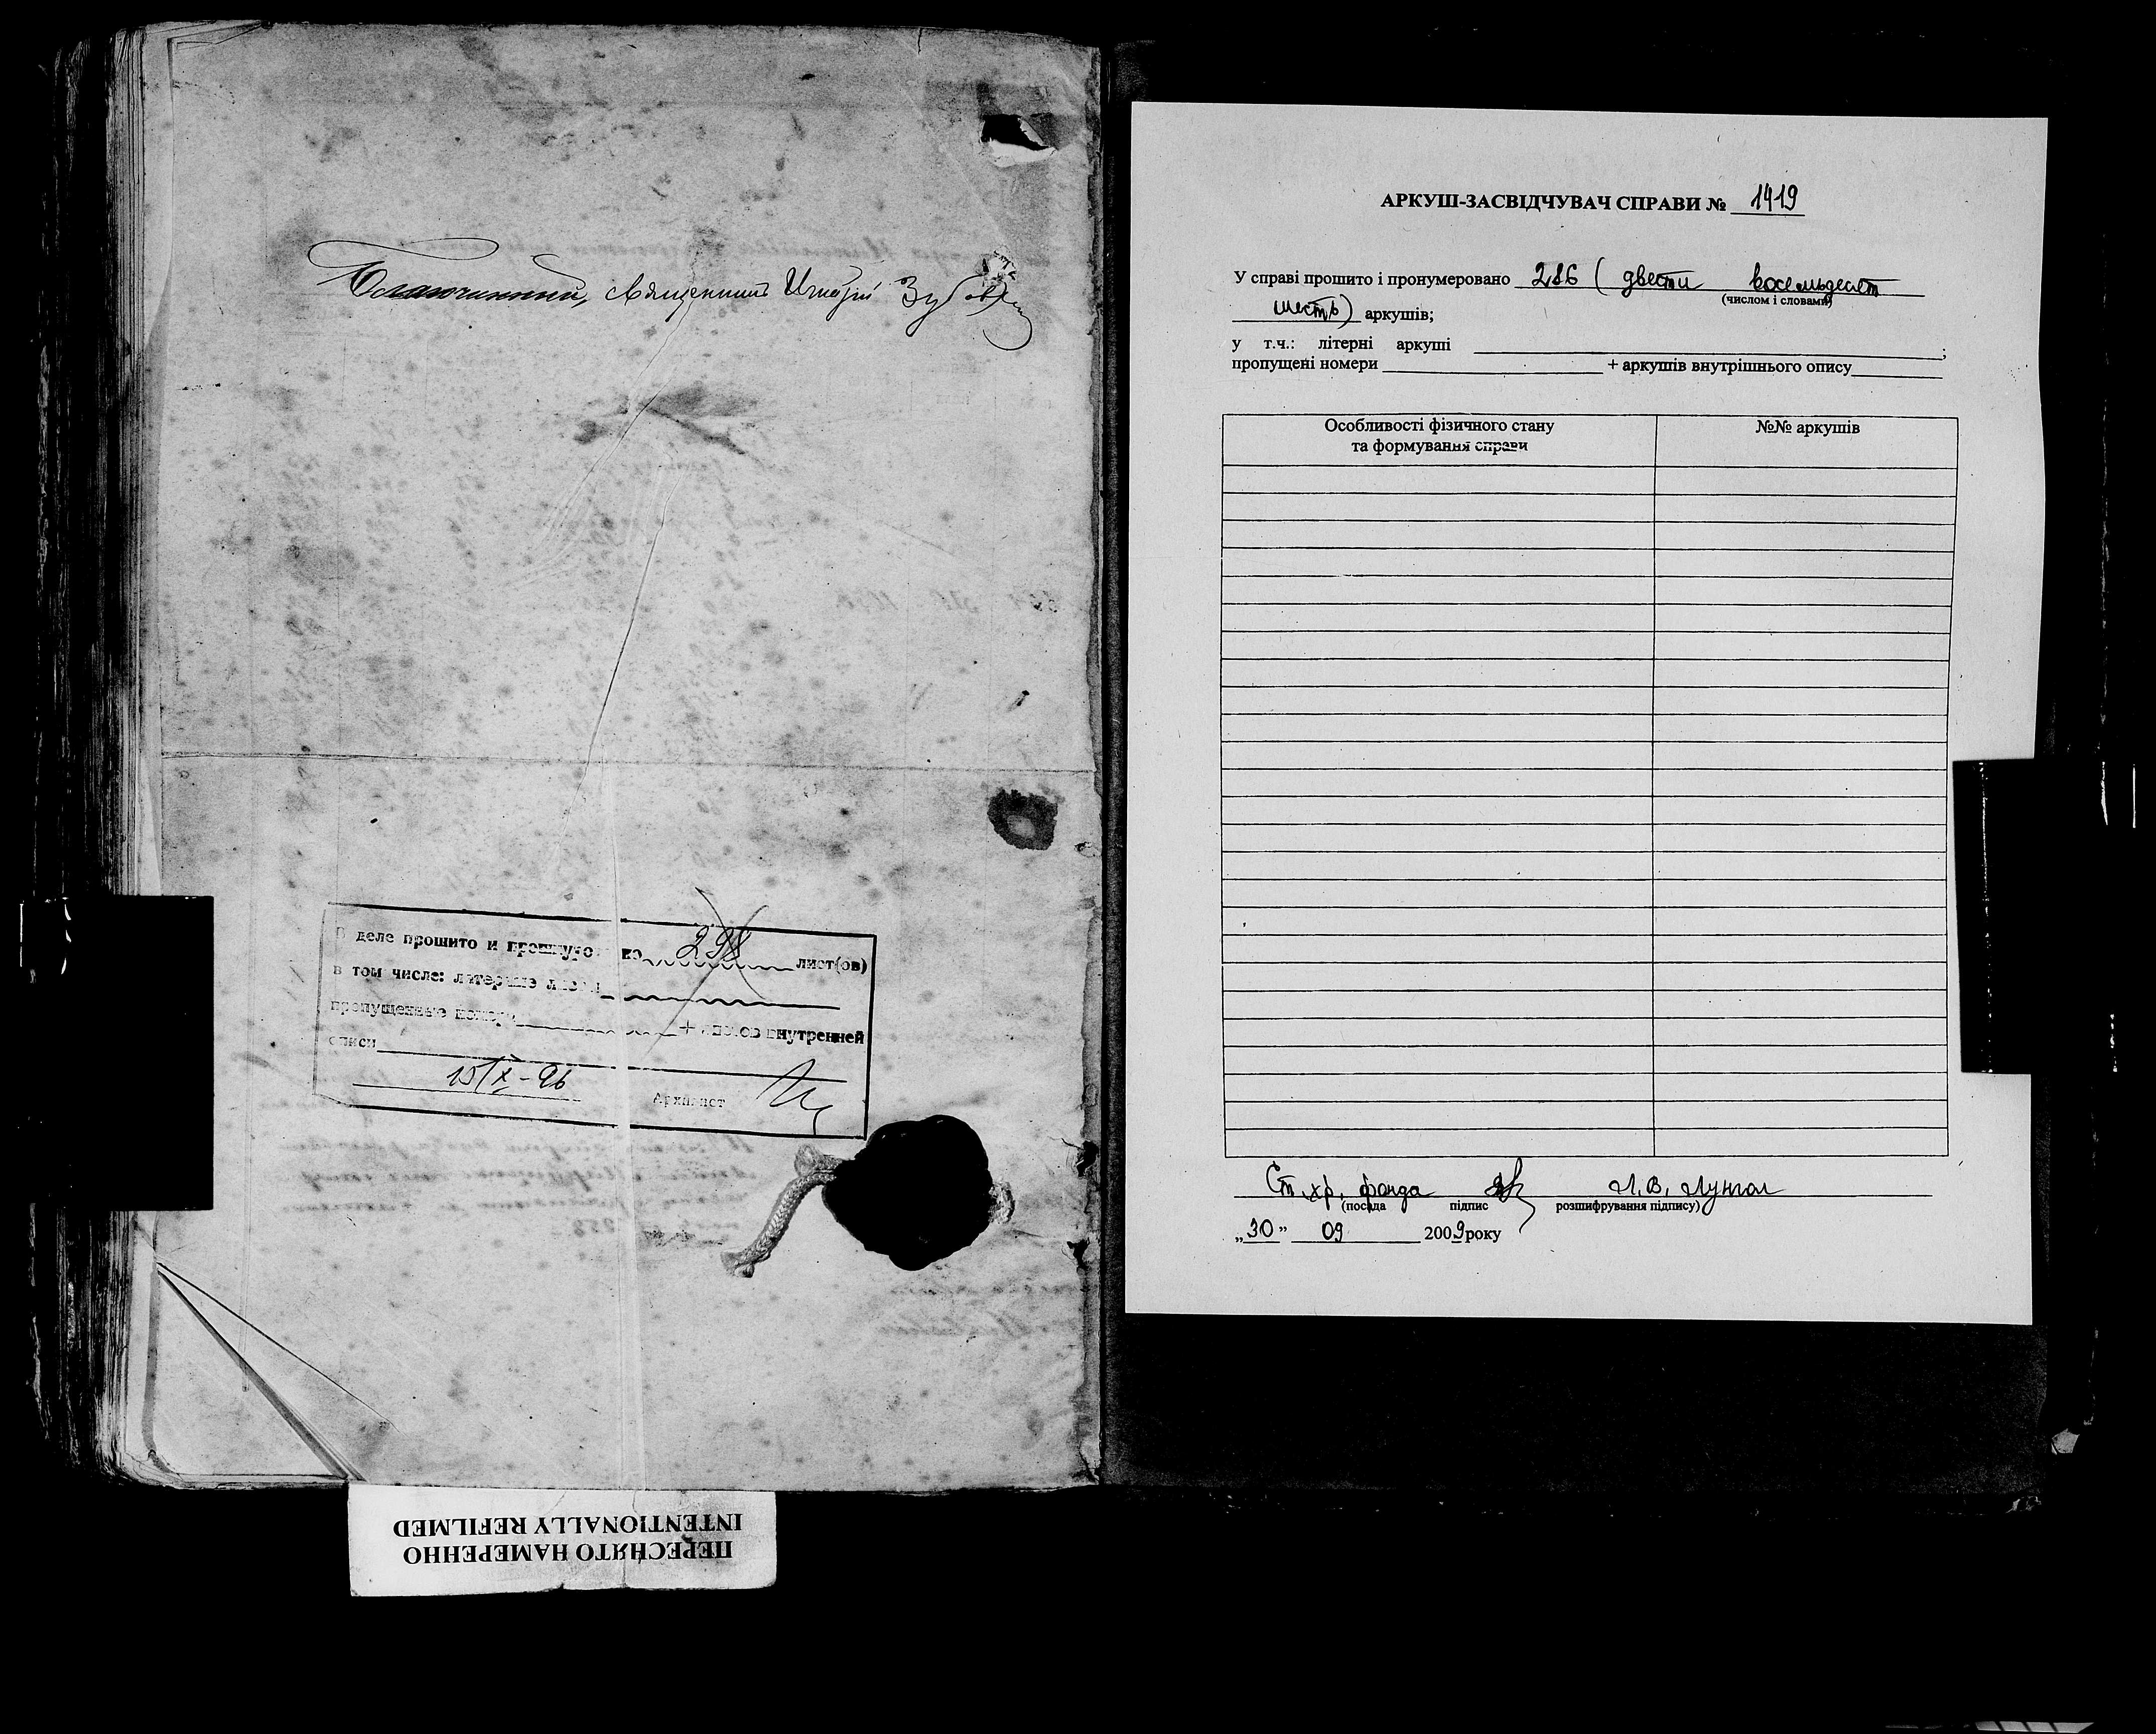 Благочинный, священникъ Игнатій Зубов
В деле прошито и пронумеровано 298 лист(ов)
в том числе: литерные листы
пропущенные номера + листов внутренней
описи
15/X-96
Архивист
ПЕРЕСНЯТО НАМЕРЕННО
INTENTIONALLY REFILMED
АРКУШ-ЗАСВІДЧУВАЧ СПРАВИ № 1419
У справі прошито і пронумеровано 286 (двести восемьдесят
(числом і словами)
шесть) аркушів;
у т.ч.: літерні аркуші ;
пропущені номери + аркушів внутрішнього опису
Особливості фізичного стану №№ аркушів
та формування справи
Ст. хр. фонда Л.В. Лунгол
(посада підпис розшифрування підпису)
„30” 09 2009 року